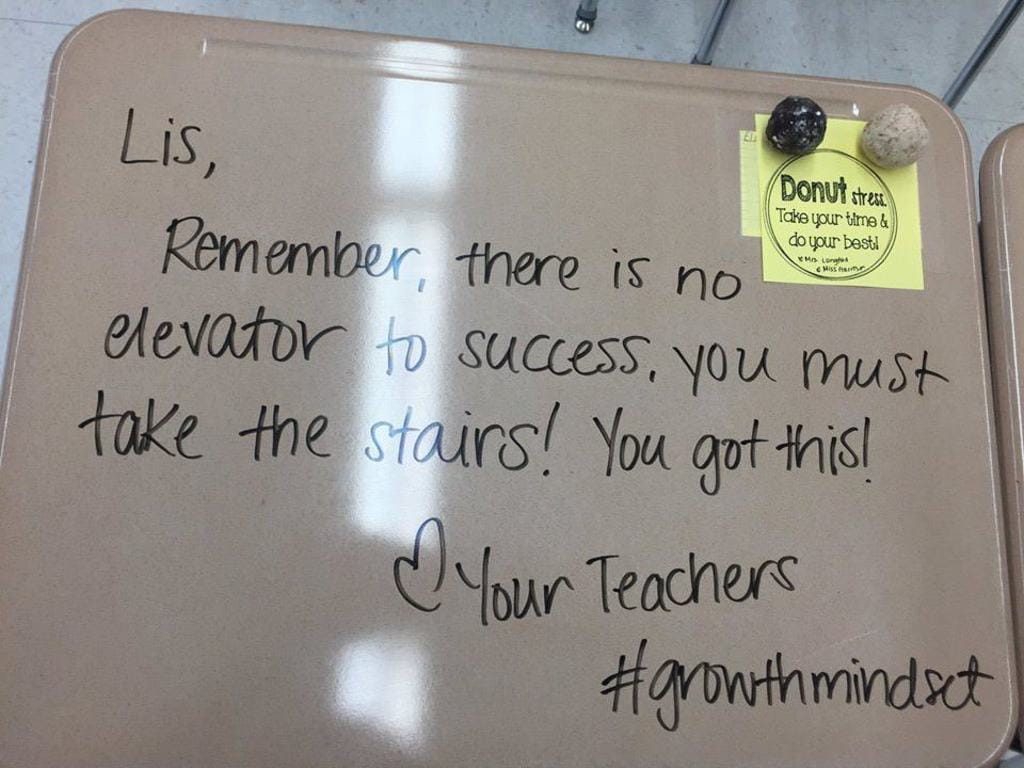 Lis,
Remember, there is no
elevator to success, you must
take the stairs! You got this!
♡ Your Teachers
#growthmindset
Donut stress.
Take your time &
do your best!
Mrs.
Miss